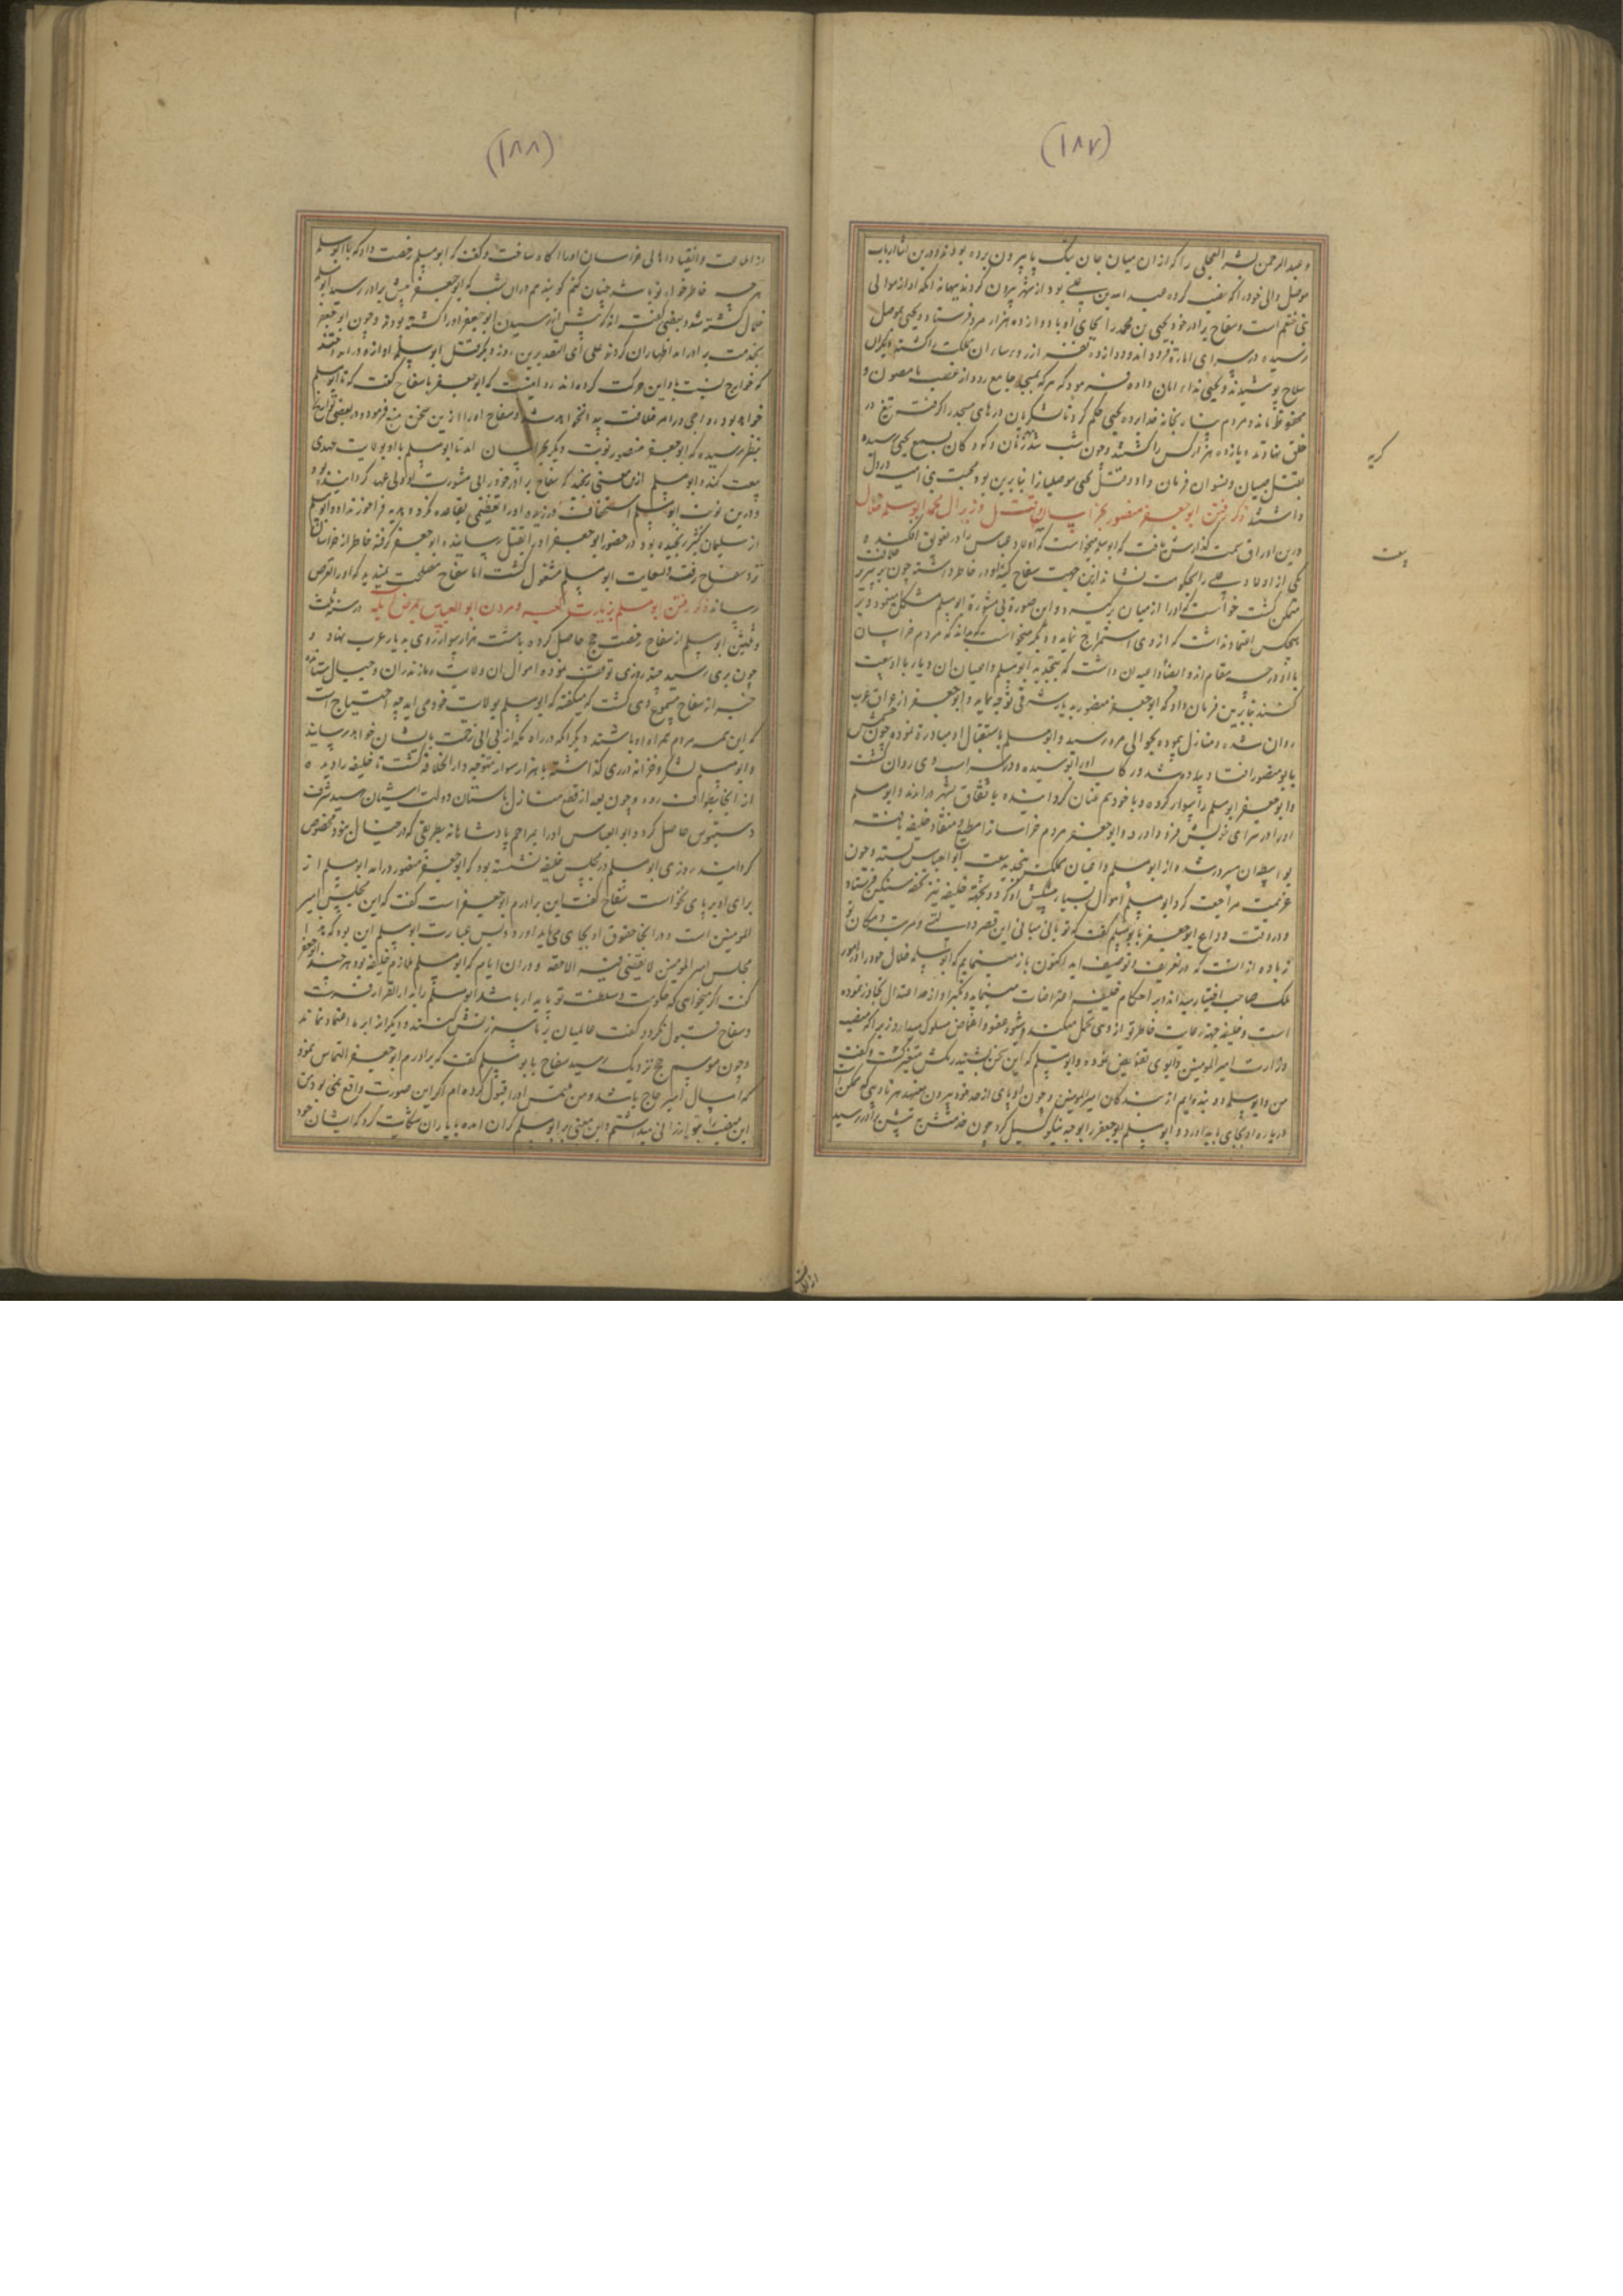 (۱۸۷)
و عبدالرحمن بشر العجلی را که از ان میان جان بتک پا بیرون برده بودند و درین اثنا ارباب
موصل والی خود را که
بنی ختعم است و سفاح برادر خود یحیی بن محمد را بجای او با دوازده هزار مرد فرستاد و یحیی بموصل
رسیده در سرای امارة فرود آمد و دوازده نفر از رؤسا ان مملکت را کشته دیکران
سلاح پوشیدند و یحیی ندا، امان داده فرمود که هر که بمسجد جامع رود از غضب ما مصون و
محفوظ ماند و مردم بخانه خدا برده یحیی حکم کرد تا لشکریان درهای مسجد را کرفته تیغ در
خلق نهادند و یازده هزار کس را کشتند و چون شب شد زنان و کودکان بسمع یحیی رسیده
بقتل صبیان و نسوان فرمان داد و قتل یحیی موصلیانرا بنابرین بود که محبت بنی امیه در دل
داشتند ذکر رفتن ابوجعفر منصور بخراسان و قتل وزیر ال محمد ابوسلمه خلال
درین اوراق سمت کذارش یافت که ابوسلمه میخواست که اولاد عباس را در تعویق افکنده
یکی از اولاد علی را بحکومت نشاند ازین جهت سفاح کینهٔ او در خاطر داشته چون بر سریر خلافت
متمکن کشت خواست که او را از میان برکیرد و این صورة بی مشورة ابومسلم مشکل مینمود و بر
هیچکس اعتماد نداشت که از وی استمزاج نماید و دیکر میخواست که بداند که مردم خراسان
با او در چه مقام اند و داشت که بتجدید ابومسلم و اعیان ان دیار با او بیعت
کنند بنابرین فرمان داد که ابوجعفر منصور بدیار شرقی توجه نماید و ابوجعفر از عراق عرب
روان شده و منازل پیموده بحوالی مرو رسید و ابومسلم باستقبال او مبادرة نموده چون چشمش
بابو منصور افتاد پیاده شد و رکاب او را بوسیده و در رکاب وی روان کشت
و ابوجعفر ابومسلم را سوار کرده و با خود هم عنان کردانیده باتفاق بشهر در امدند و ابومسلم
او را در سرای خویش فرود اورد و ابوجعفر مردم خراسان را مطیع و منقاد خلیفه یافته
مسرور شد و از ابومسلم و اعیان مملکت بتجدید بیعت ابوالعباس بستد و چون
عزیمت مراجعت کرد ابومسلم اموال بسیار پیشکش او کرد و بجهة خلیفه نیز تحفه سنکین فرستاد
و در وقت وداع ابوجعفر با ابومسلم کفت که تو بانی مبانی این قصر دولتی و مرتبه و مکان تو
زیاده از انست که در تعریف و توصیف اید اکنون باز مینمایم که ابوسلمه خلال خود را در امور
ملک صاحب اختیار میداند و بر احکام خلیفه اعتراضات مینماید و تکبر او از حد اعتدال تجاوز نموده
است و خلیفه جهة رعایت خاطر تو از وی تحمل میکند و بشیوه عفو و اغماض سلوک میدارد زیرا که منصب
وزارت امیر المومنین را بوی تفویض نموده و ابومسلم که این سخن بشنید رنکش متغیر کشت و کفت
من و ابوسلمه دو بنده ایم از بندکان امیرالمومنین و چون او پای از حد خود بیرون مینهد هر تادیبی که ممکن است
درباره او بجای باید اورد و ابومسلم ابوجعفر را بوجه نیکو کسیل کرد چون خدمتش پیش برادر رسید
کریه
بیعت
(۱۸۸)
از اطاعت و انقیاد اهالی خراسان او را اکاه ساخت و کفت که ابومسلم رخصت داد که با ابوسلمه
هرچه خاطرخواه تو باشد چنان کنم کویند هم دران شب که ابوجعفر پیش برادر رسید ابوسلمه
خلال کشته شد و بعضی کفته اند که پیش از رسیدن ابوجعفر او را کشته بودند و چون ابوجعفر
بخدمت برادر امد اظهار ان کردند علی ای التقدیرین روز دیکر قتل ابوسلمه اوازه درانداختند
که خوارج نسبت باو این حرکت کرده اند روایتست که ابوجعفر با سفاح کفت که تا ابومسلم
خواهد بود رواجی در امر خلافت پیدا نخواهد شد و سفاح او را ازین سخن منع فرمود و در بعضی تواریخ
بنظر رسیده که ابوجعفر منصور نوبت دیکر بخراسان امد تا ابومسلم با او بولایت عهدی
بیعت کند و ابومسلم ازین معنی برنجید که سفاح برادر خود را بی مشورت او ولی عهد کردانیده بود
و درین نوبت ابومسلم استخفاف ورزیده او را تعظیمی بقاعده نکرد و
از سلیمان کثیر رنجیده بود در حضور ابوجعفر او را بقتل رسانید و ابوجعفر کوفته خاطر از خراسان
نزد سفاح رفته و بسعایت ابومسلم مشغول کشت اما سفاح مصلحت ندید که او را تعرض
رساند ذکر رفتن ابومسلم بزیارت کعبه و مردن ابوالعباس بمرض ابله در سنه ست
و ثلثین ابومسلم از سفاح رخصت حج حاصل کرده با هشت هزار سوار روی بدیار عرب نهاد و
چون بری رسید چند روزی توقف نموده اموال ان ولایت و مازندران و جبال بستانده
خبر از سفاح مسموع وی کشت که میکفته که ابومسلم بولایت خود می اید چه احتیاج است
که این همه مردم همراه او باشند دیکر انکه در راه مکه از بی ابی زحمت بایشان خواهد رسید
و ابومسلم لشکر و خزانه در ری کذاشته با هزار سوار متوجه دارالخلافه کشت تا خلیفه را دیده
از انجا بطواف رود و چون بعد از قطع منازل باستان دولت اشیان رسید شرف
دستبوس حاصل کرد و ابوالعباس او را بمراحم پادشاهانه بطریقی که در خیال نبود مخصوص
کردانید روزی ابومسلم در مجلس خلیفه نشسته بود که ابوجعفر منصور درامد ابومسلم از
برای او بر پای نخواست سفاح کفت این برادرم ابوجعفر است کفت که این مجلس امیر
المومنین است و در انجا حقوق او بجای می باید اورد و پس عبارت ابومسلم این بود که هذا
مجلس امیر المومنین لا یقضی فیه الا حقه و دران ایام که ابومسلم ملازم خلیفه بود هرچند ابوجعفر
کفت اکر میخواهی که حکومت و سلطنت تو پایدار باشد ابومسلم را بدارالقرار فرست
و سفاح قبول نکرد و کفت عالمیان ما را سرزنش کنند و دیکر انرا بر ما اعتماد نماند
و چون موسم حج نزدیک رسید سفاح با ابومسلم کفت که برادرم ابوجعفر التماس نموده
که امسال امیر حاج باشد و من ملتمس او را قبول کرده ام اکر این صورت واقع نمی بودی
این منصب را بتو ارزانی میداشتم و این معنی بر ابومسلم کران امده با یاران شکایت کرد که ایشان خود